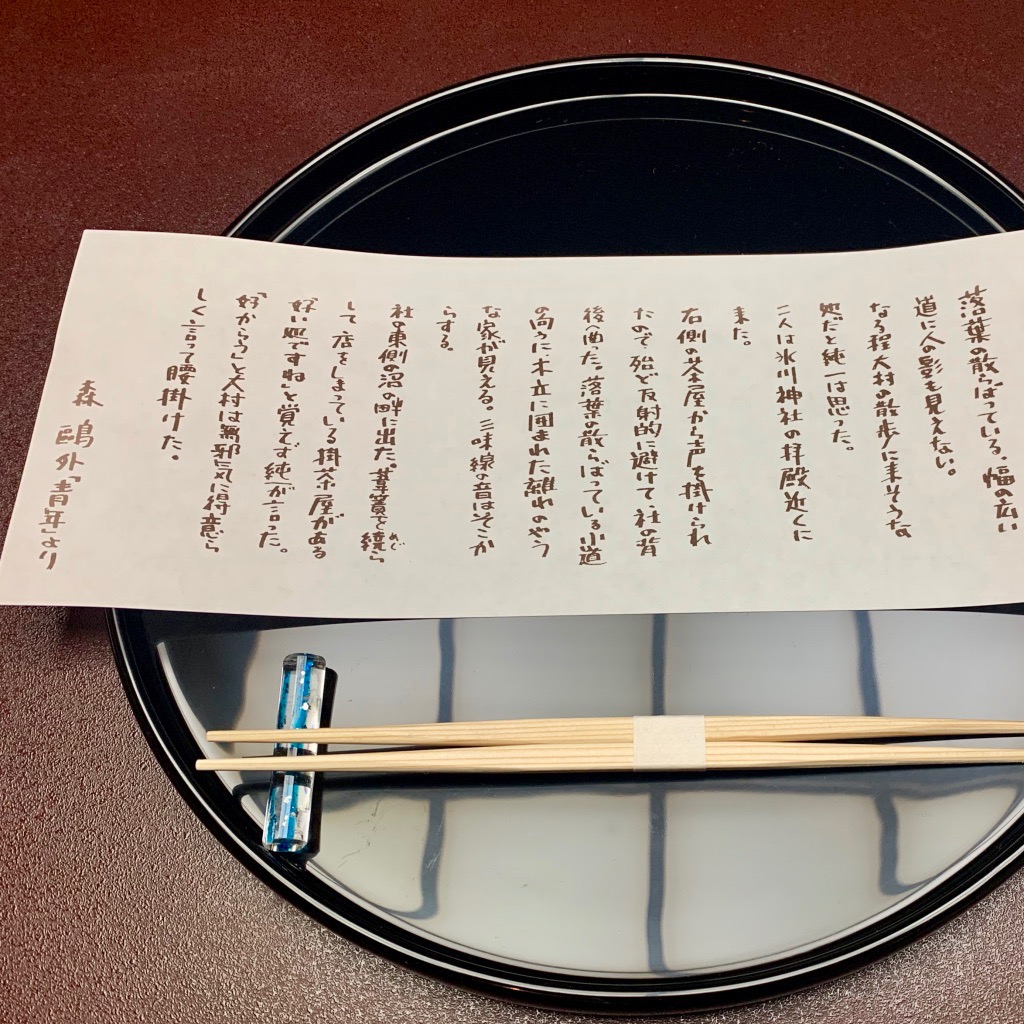 落葉の散らばっている、幅の広い
道に人の影も見えない。
なる程大村の散歩に来そうな
処だと純一は思った。
二人は氷川神社の拝殿近くに
来た。
右側の茶屋から声を掛けられ
たので殆ど反射的に避けて、社の背
後へ曲った。落葉の散らばっている小道
の向うに、木立に囲まれた離れのやう
な家が見える。三味線の音はそこか
らする。
社の東側の沼の畔に出た。葦簀を繞ら
めぐ
して店をしまっている掛茶屋がある
「好い処ですね」と覚えず純一が言った。
「好からう」と大村は無邪気に得意ら
しく言って腰掛けた。
森 鷗外「青年」より